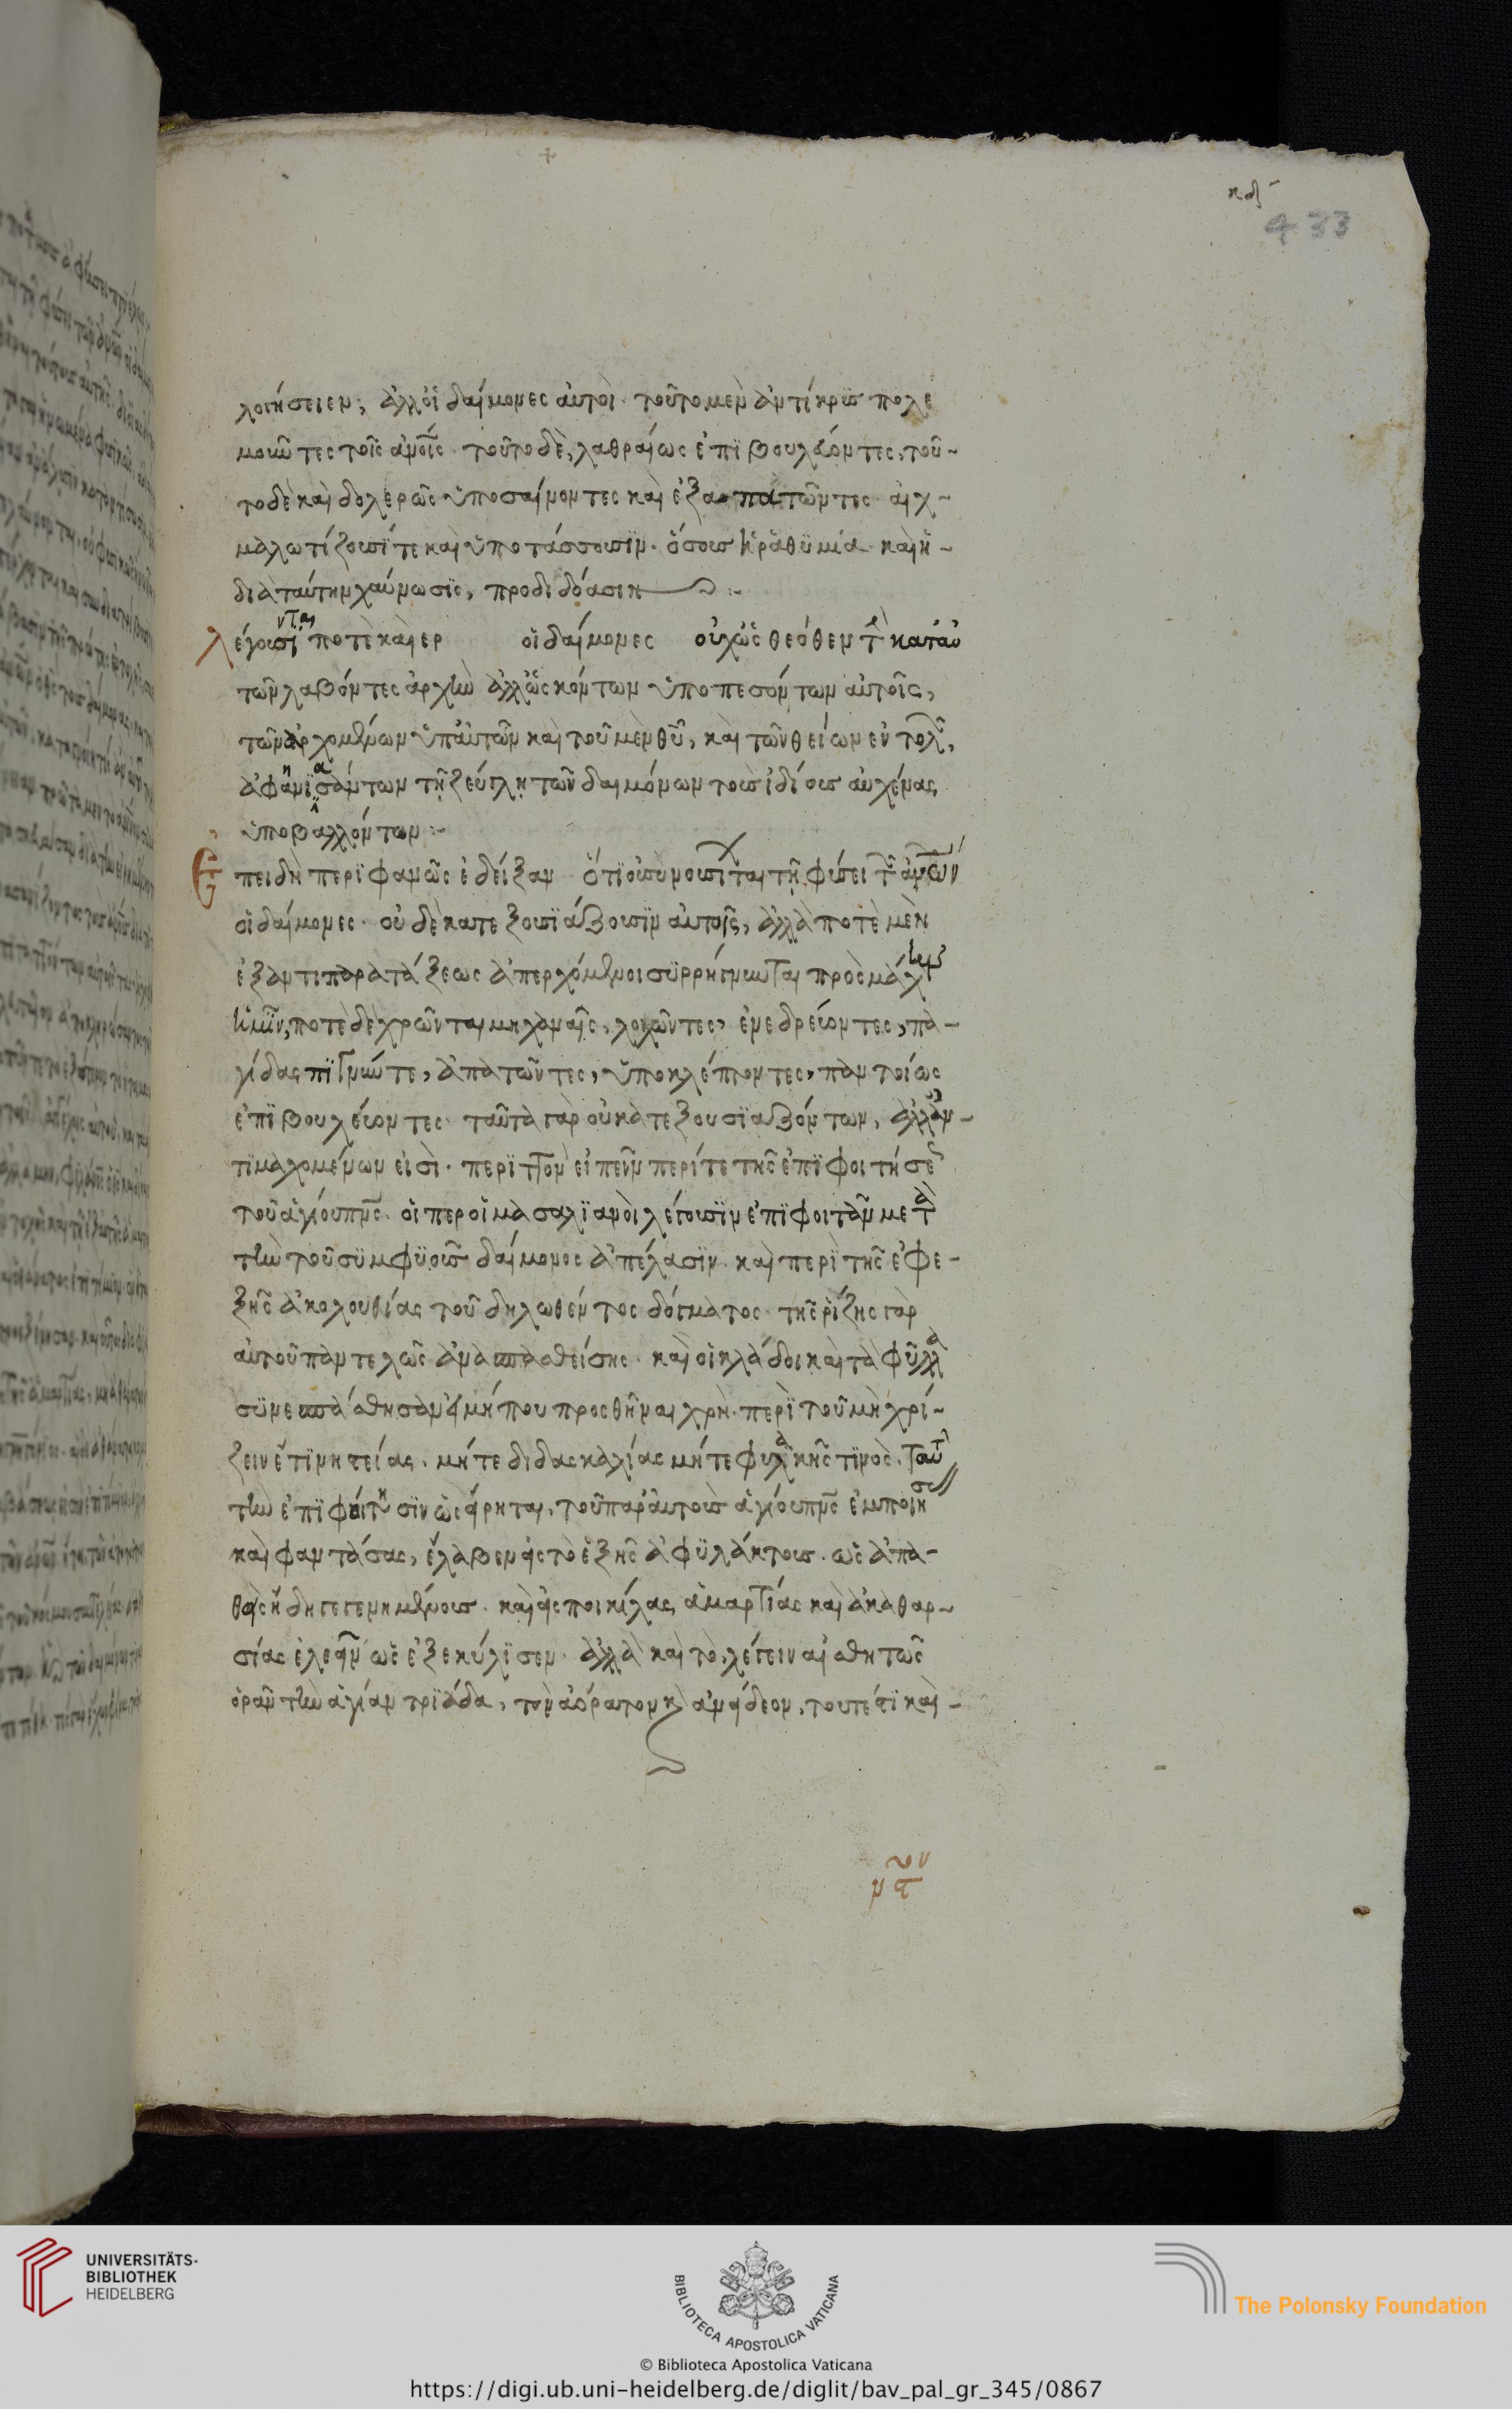 κδ
433
λοιήσειεν; ἀλλ' οἱ δαίμονες αὐτοὶ. τοῦτο μὲν ἀντίκρυς πολε
μοῦντες τοῖς ἀνοις. τοῦτο δὲ, λαθραίως ἐπιβουλεύοντες, τοῦ-
το δὲ καὶ δολερῶς ὑποσαίνοντες καὶ ἐξαπατῶντες αἰχ-
μαλωτίζουσί τε καὶ ὑποτάσσουσιν. ὅσους ἡ ῥαθυμία καὶ ἡ-
διὰ ταύτην χαύνωσις, προδιδόασιν
λέγονται ποτὲ καὶ ερ οἱ δαίμονες οὐχ ὡς θεόθεν τ κατ' αὐ
τῶν λαβόντες ἀρχὴν ἀλλ' ὡς κόντων ὑποπεσόντων αὐτοῖς,
τῶν ἀρχομένων ὑπ' αὐτῶν καὶ τοῦ μὲν θυ, καὶ τῶν θείων ἐντολ,
ἀφηνιασάντων τῇ ζεύγλῃ τῶν δαιμόνων τοὺς ἰδίους αὐχένας
ὑποβαλλόντων :-
Ἐπειδὴ περιφανῶς ἐδείξαν ὅτι οὐσυνουσι ται τῇ φύσει τ ἀνων
οἱ δαίμονες. οὐδὲ κατεξουσιάζουσιν αὐτοῖς, ἀλλὰ ποτὲ μὲν
ἐξ ἀντιπαρατάξεως ἀπερχόμενοι συρρήγνυνται πρὸς μάχην
ἡμῖν, ποτὲ δὲ χρῶνται μηχαναῖς, λοχῶντες, ἐνεδρεύοντες, πα-
γίδας πιγνῶντε, ἀπατῶντες, ὑποκλέπτοντες, παντοίως
ἐπιβουλεύοντες ταῦτα γὰρ οὐ κατεξουσιαζόντων, ἀλλ' ἀν-
τιμαχομένων εἰσὶ. περιττὸν εἰπεῖν περί τε τῆς ἐπιφοιτήσε
τοῦ ἁγίου πνς. οἱπερ οἱ μασαλιανοὶ λέγουσιν ἐπιφοιτᾶν μετὰ
τὴν τοῦ συμφυοῦς δαίμονος ἀπέλασιν. καὶ περὶ τῆς ἐφε-
ξῆς ἀκολουθίας τοῦ δηλωθέντος δόγματος. τῆς ῥίζης γὰρ
αὐτοῦ παντελῶς ἀνασπασθείσης. καὶ οἱ κλάδοι καὶ τὰ φύλλα
συνεσπάσθησαν εἰ μήπου προσθῆναι χρὴ. περὶ τοῦ μὴ χρῄ-
ζειν ἔτι νηστείας. μήτε διδασκαλίας μήτε φυλακῆς τινος. ταύτ
τὴν ἐπιφοίτησιν ὡς εἴρηται. τοῦ παρ' αὐτοὺς ἁγίου πνς ἐμποιησ
καὶ φαντάσας, ἔλαβεν εἰς τὸ ἑξῆς ἀφυλάκτους. ὡς ἀπα-
θεῖς ἤδη γεγενημένους. καὶ εἰς ποικίλας ἁμαρτίας καὶ ἀκαθαρ-
σίας ἐλεεινῶς ἐξεκύλισεν. ἀλλὰ καὶ τὸ λέγειν αἰσθητῶς
ὁρᾶν τὴν ἁγίαν τριάδα, τὴν ἀόρατον καὶ ἀνείδεον. τουτέστι καὶ-
UNIVERSITÄTS-
BIBLIOTHEK
HEIDELBERG
BIBLIOTECA APOSTOLICA VATICANA
The Polonsky Foundation
© Biblioteca Apostolica Vaticana
https://digi.ub.uni-heidelberg.de/diglit/bav_pal_gr_345/0867